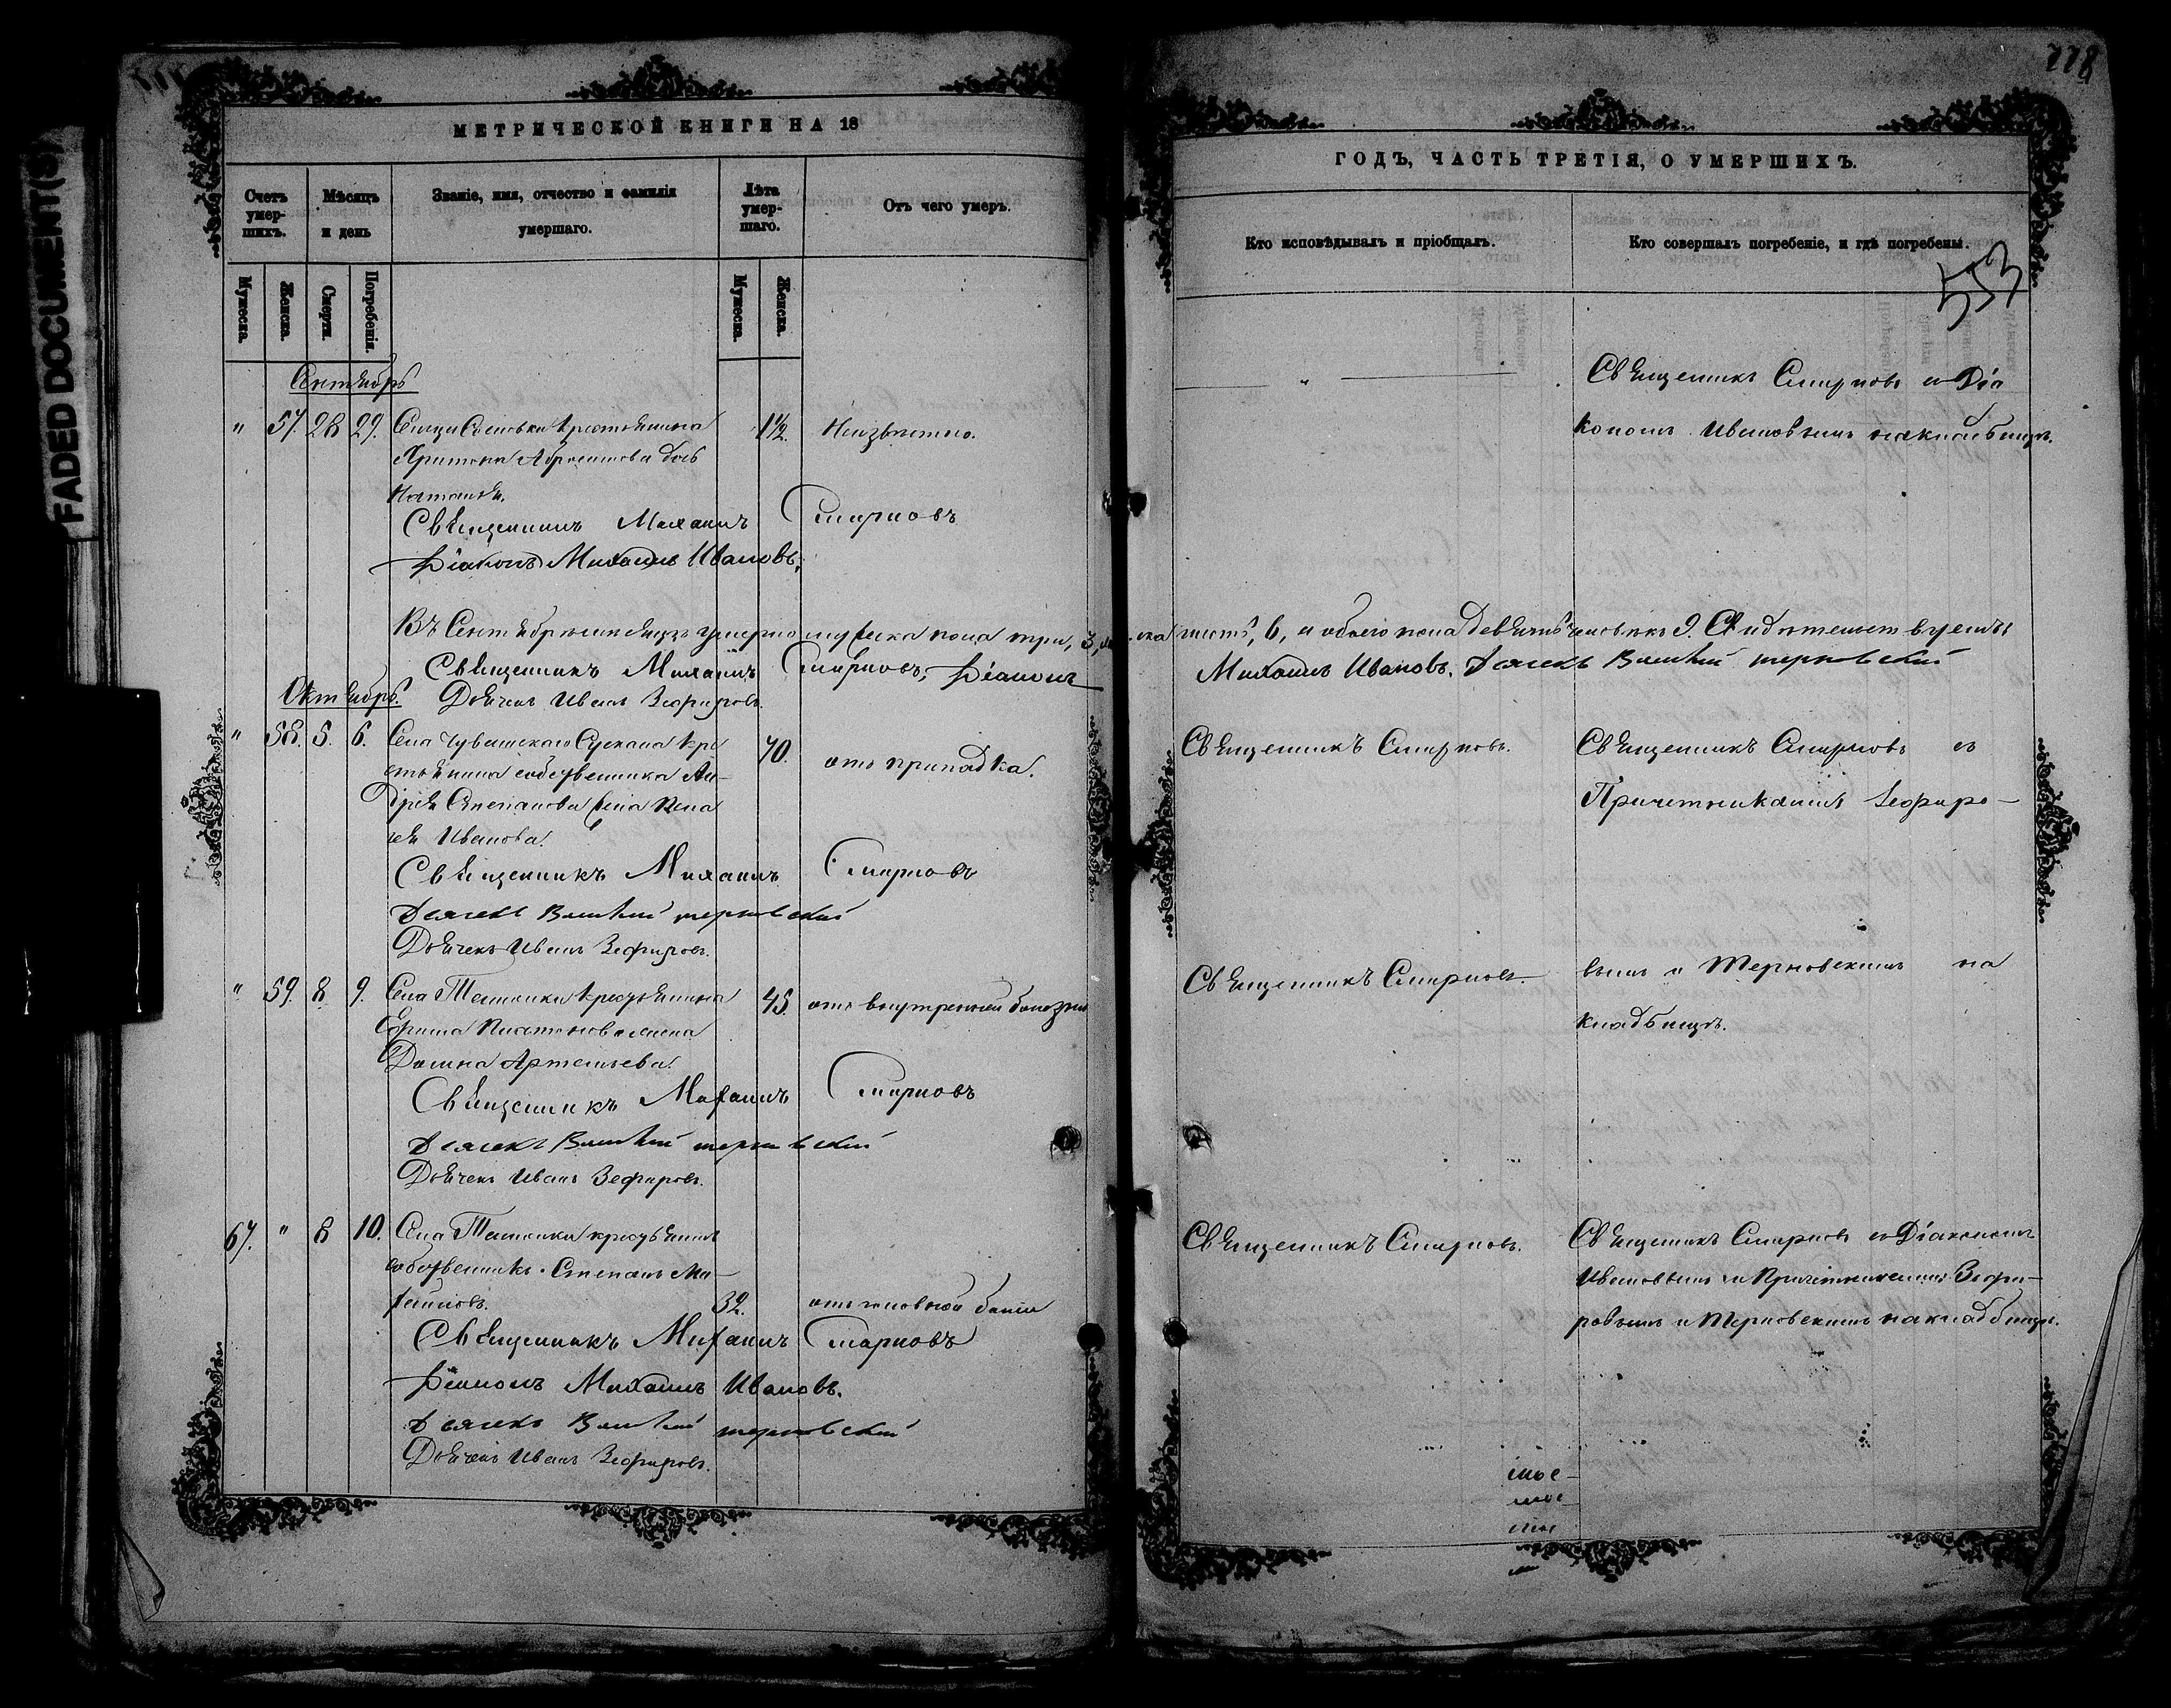 FADED DOCUMENT(S)
МЕТРИЧЕСКОЙ КНИГИ НА 18
Счетъ умер-шихъ.
Мѣсяцъ и день
Званіе, имя, отчество и фамилія умершаго.
Лѣта умер-шаго.
Отъ чего умеръ.
Мужеска.
Женска.
Смерти.
Погребенія.
Мужеска.
Женска.
Сентябрь
" 57. 28 29. крестьянина 1½. Неизвѣстно.
дочь
Наталья.
Священникъ Михаилъ Смирновъ
Діаконъ Михаилъ Ивановъ.
Въ Сентябрѣ мѣсяцѣ умерло мужеска пола три, 3,
Священникъ Михаилъ Смирновъ, Діаконъ
Октябрь. Дьячекъ Иванъ Зефировъ.
" 58. 5. 6. Села Чувашскаго Сускана кре 70. отъ припадка.
стьянина собственника Ан-
дрея Степанова жена Пела
гея Иванова.
Священникъ Михаилъ Смирновъ
Дьячекъ Терновскій
Дьячекъ Иванъ Зефировъ.
" 59. 8. 9. Села Ташолки крестьянина 45. отъ внутренней болѣзни
Ефима Платонова жена
Домна Артемьева.
Священникъ Михаилъ Смирновъ
Дьячекъ Терновскій
Дьячекъ Иванъ Зефировъ.
67. " 8 10. Села Ташолки крестьянинъ
собственникъ Степанъ Ми-
хайловъ. 32. отъ головной боли
Священникъ Михаилъ Смирновъ
Діаконъ Михаилъ Ивановъ.
Дьячекъ Терновскій
Дьячекъ Иванъ Зефировъ.
778
ГОДЪ, ЧАСТЬ ТРЕТІЯ, О УМЕРШИХЪ.
Кто исповѣдывалъ и пріобщалъ.
Кто совершалъ погребеніе, и гдѣ погребены.
553
" Священникъ Смирновъ съ Діа
кономъ Ивановымъ на кладбищѣ.
шесть, 6, и обоего пола девять человѣкъ 9.
Михаилъ Ивановъ. Дьячекъ Терновскій
Священникъ Смирновъ. Священникъ Смирновъ съ
Причетниками Зефиро-
Священникъ Смирновъ. вымъ и Терновскимъ на
кладбищѣ.
Священникъ Смирновъ. Священникъ Смирновъ съ Діакономъ
Ивановымъ и Причетниками Зефи-
ровымъ и Терновскимъ на кладбищѣ.